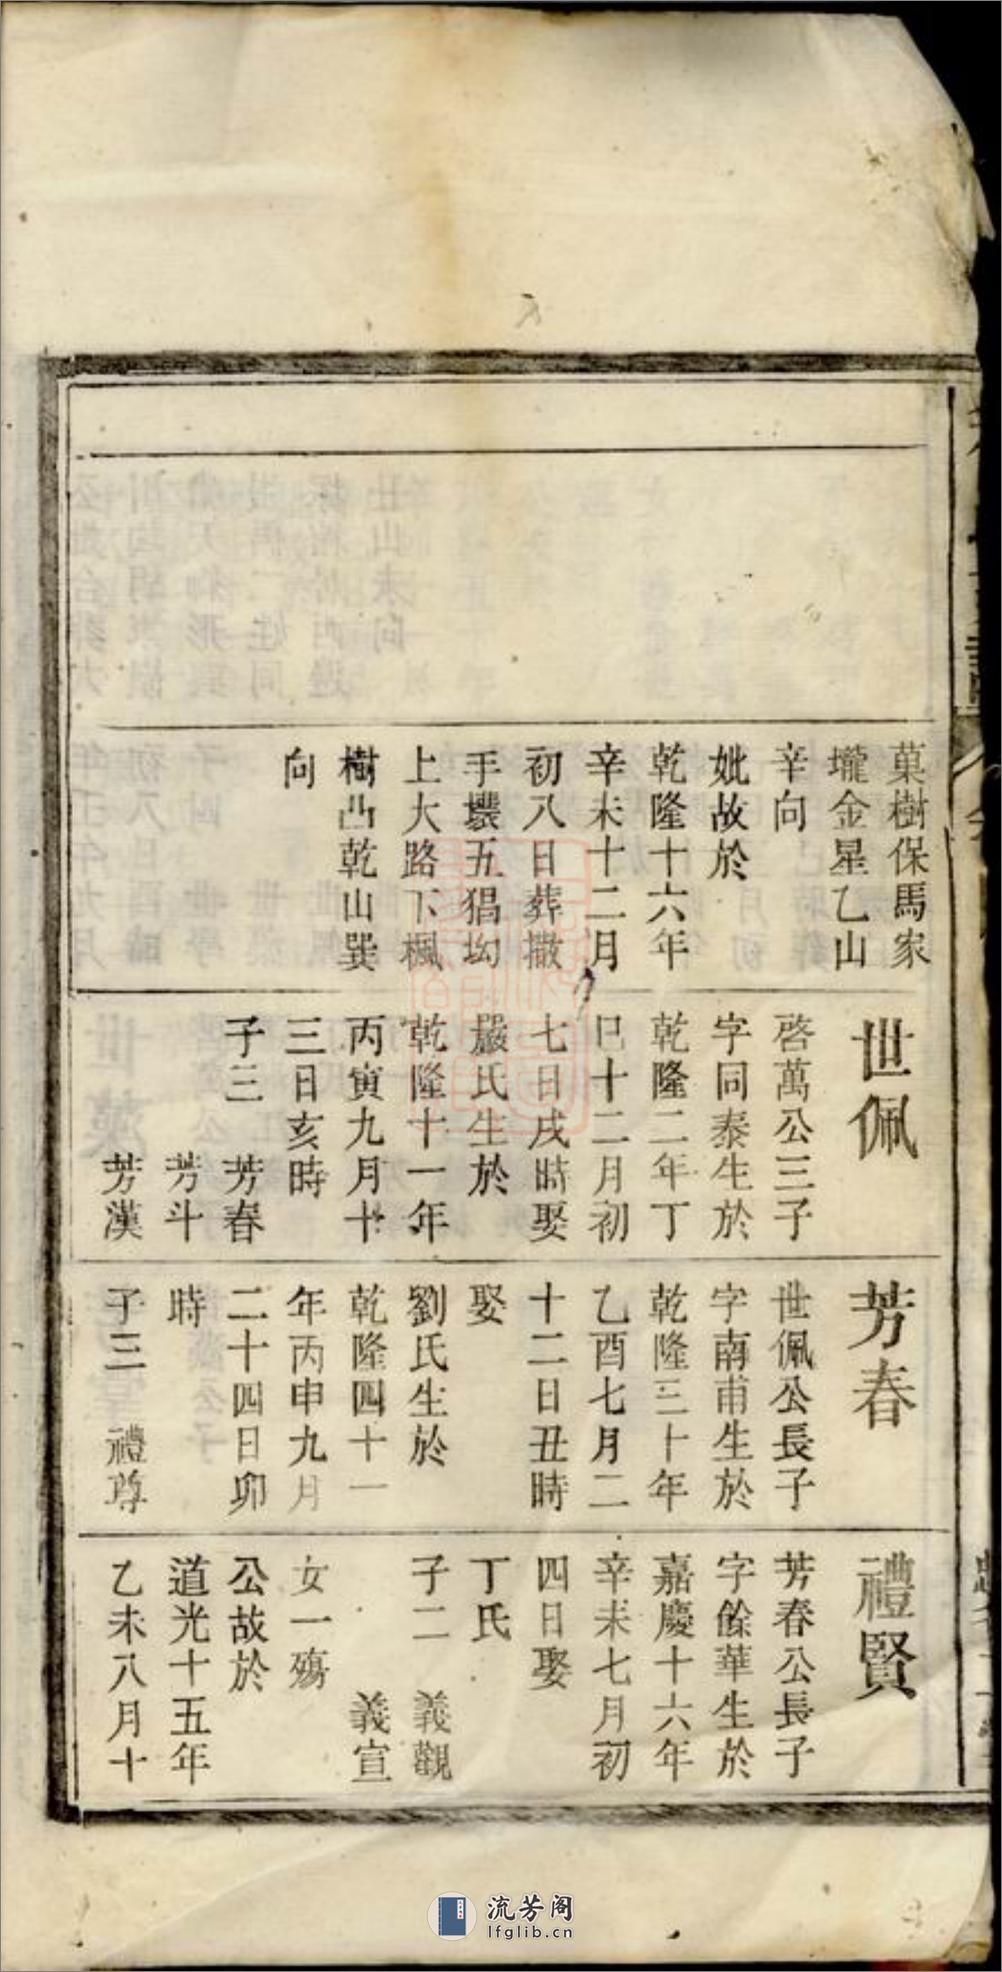 菓樹保馬家
壠金星乙山
辛向
妣故於
乾隆十六年
辛未十二月
初八日葬撒
手壊五猖坳
上大路下楓
樹凸乾山巽
向
世佩
啓萬公三子
字同泰生於
乾隆二年丁
巳十二月初
七日戌時娶
嚴氏生於
乾隆十一年
丙寅九月十
三日亥時
子三 芳春
芳斗
芳漢
芳春
世佩公長子
字南甫生於
乾隆三十年
乙酉七月二
十二日丑時
娶
劉氏生於
乾隆四十一
年丙申九月
二十四日卯
時
子三 禮尊
禮賢
芳春公長子
字餘華生於
嘉慶十六年
辛未七月初
四日娶
丁氏
子二 義觀
義宣
女一殤
公故於
道光十五年
乙未八月十
流芳阁
lfglib.cn